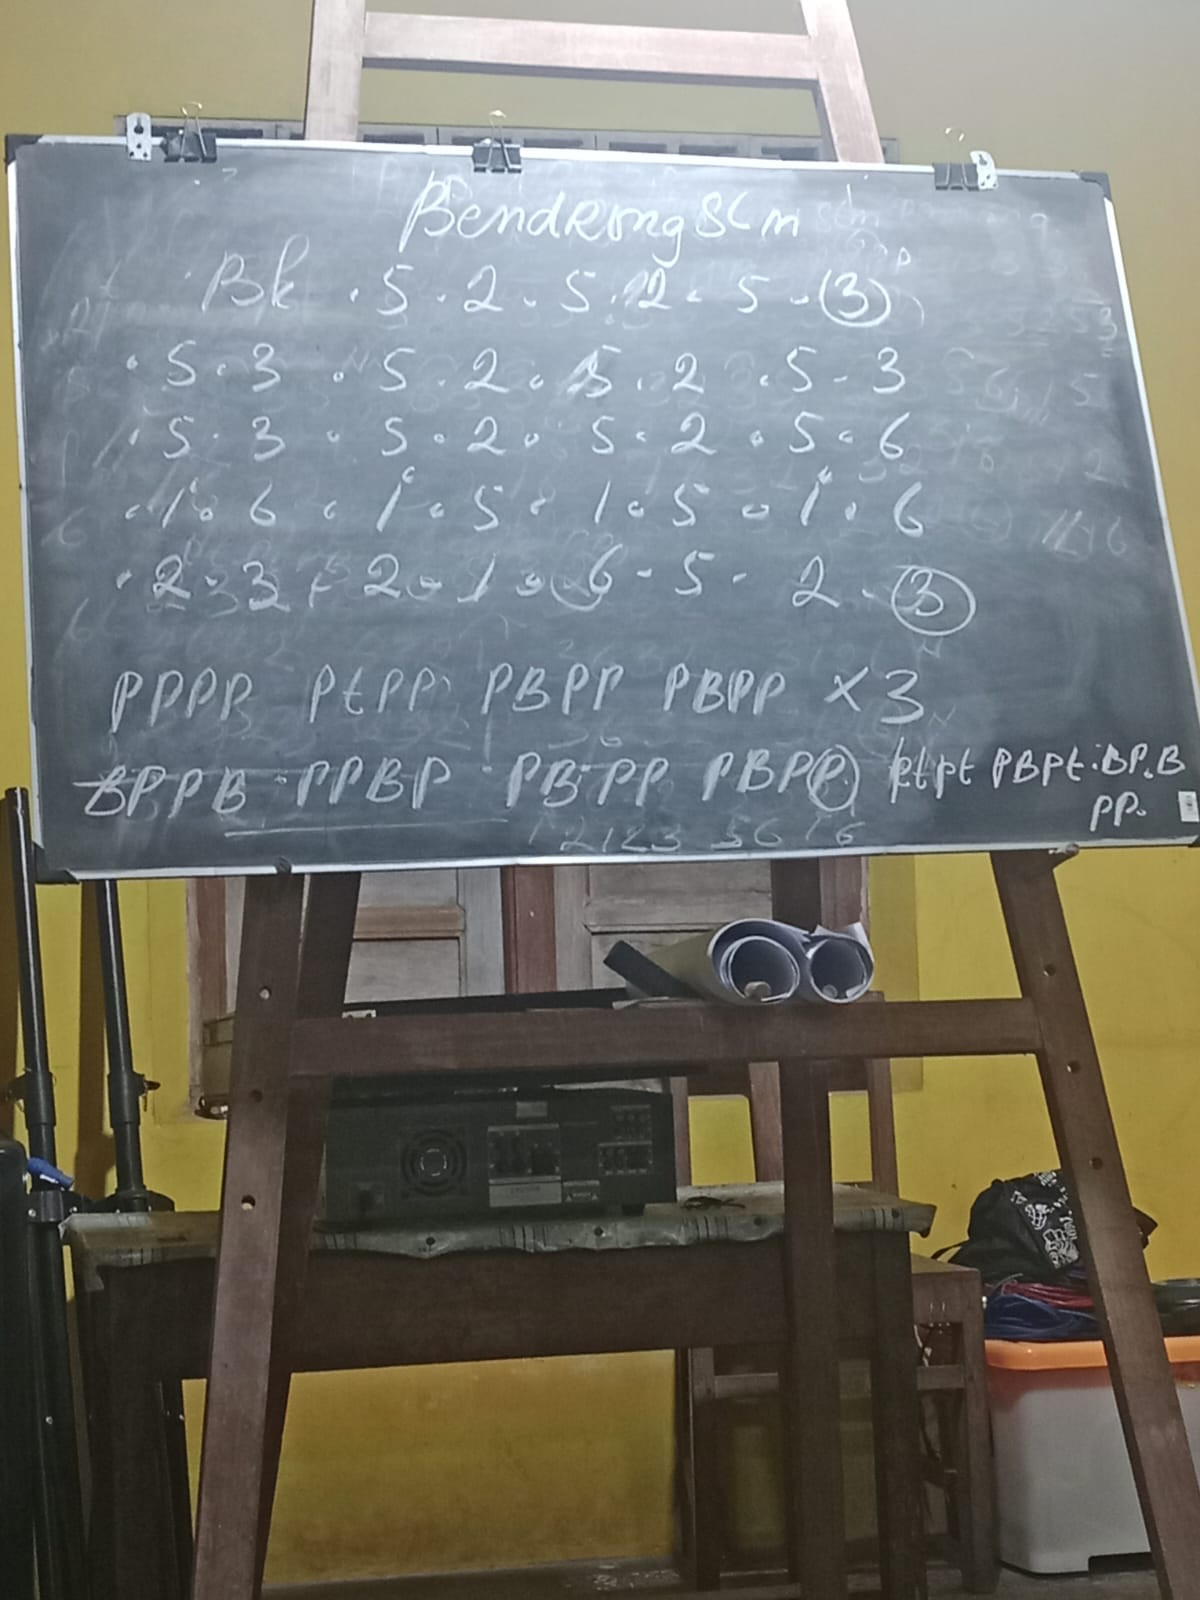 Bendrong Slm
Bk . 5 . 2 . 5 . 2 . 5 . (3)
. 5 . 3 . 5 . 2 . 5 . 2 . 5 . 3
. 5 . 3 . 5 . 2 . 5 . 2 . 5 . 6
. 1̇ . 6 . 1̇ . 5 . 1 . 5 . 1̇ . 6
. 2 . 3 . 2 . 1 . 6 . 5 . 2 . (3)
PPPP PtPP PBPP PBPP x 3
BPPB .PPBP .PB.PP PBP(P) ptpt PBPt.BP.B
PP.